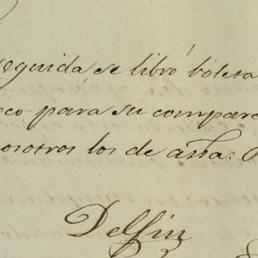 seguida, se libró boleta
para su compare
nosotros los de assa:
Delfin